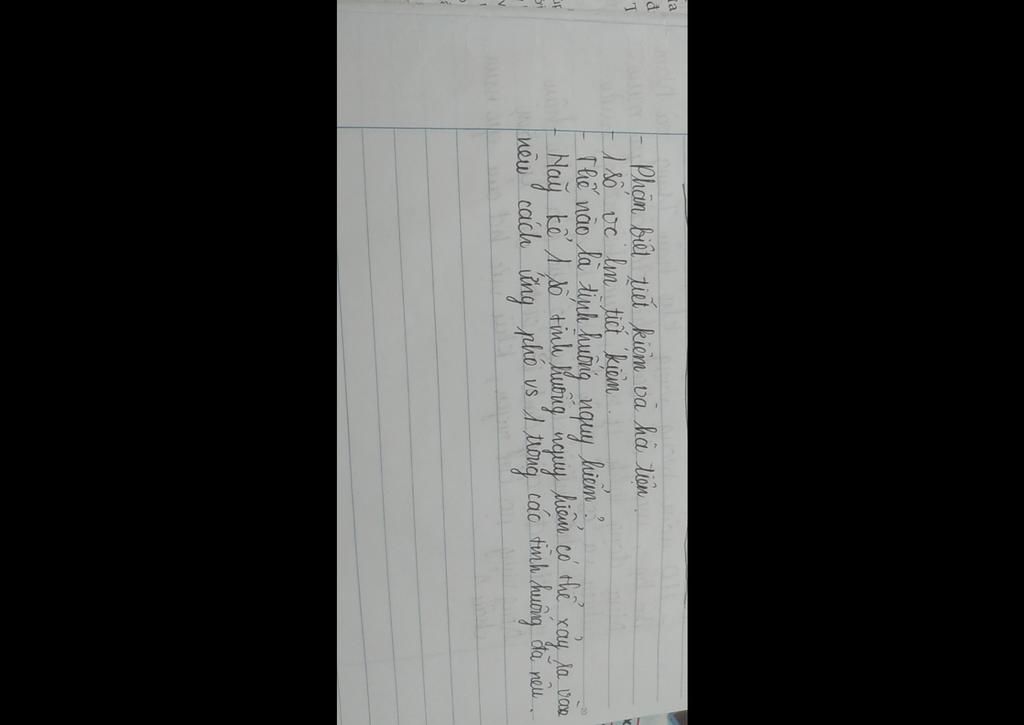 - Phân biệt tiết kiệm và hà tiện.
- 1 số vc lm tiết kiệm.
- Thế nào là tình huống nguy hiểm?
- Hãy kể 1 số tình huống nguy hiểm có thể xảy ra và
nêu cách ứng phó vs 1 trong các tình huống đã nêu.